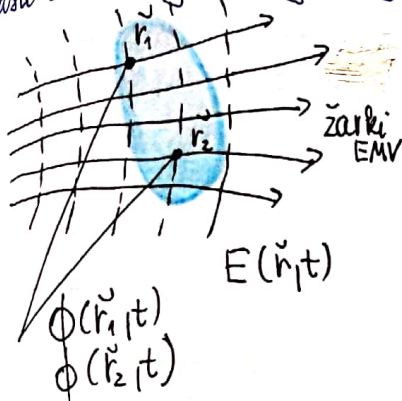 r̆₁
r̆₂
žarki
EMV
E(r̆,t)
ϕ(r̆₁,t)
ϕ(r̆₂,t)